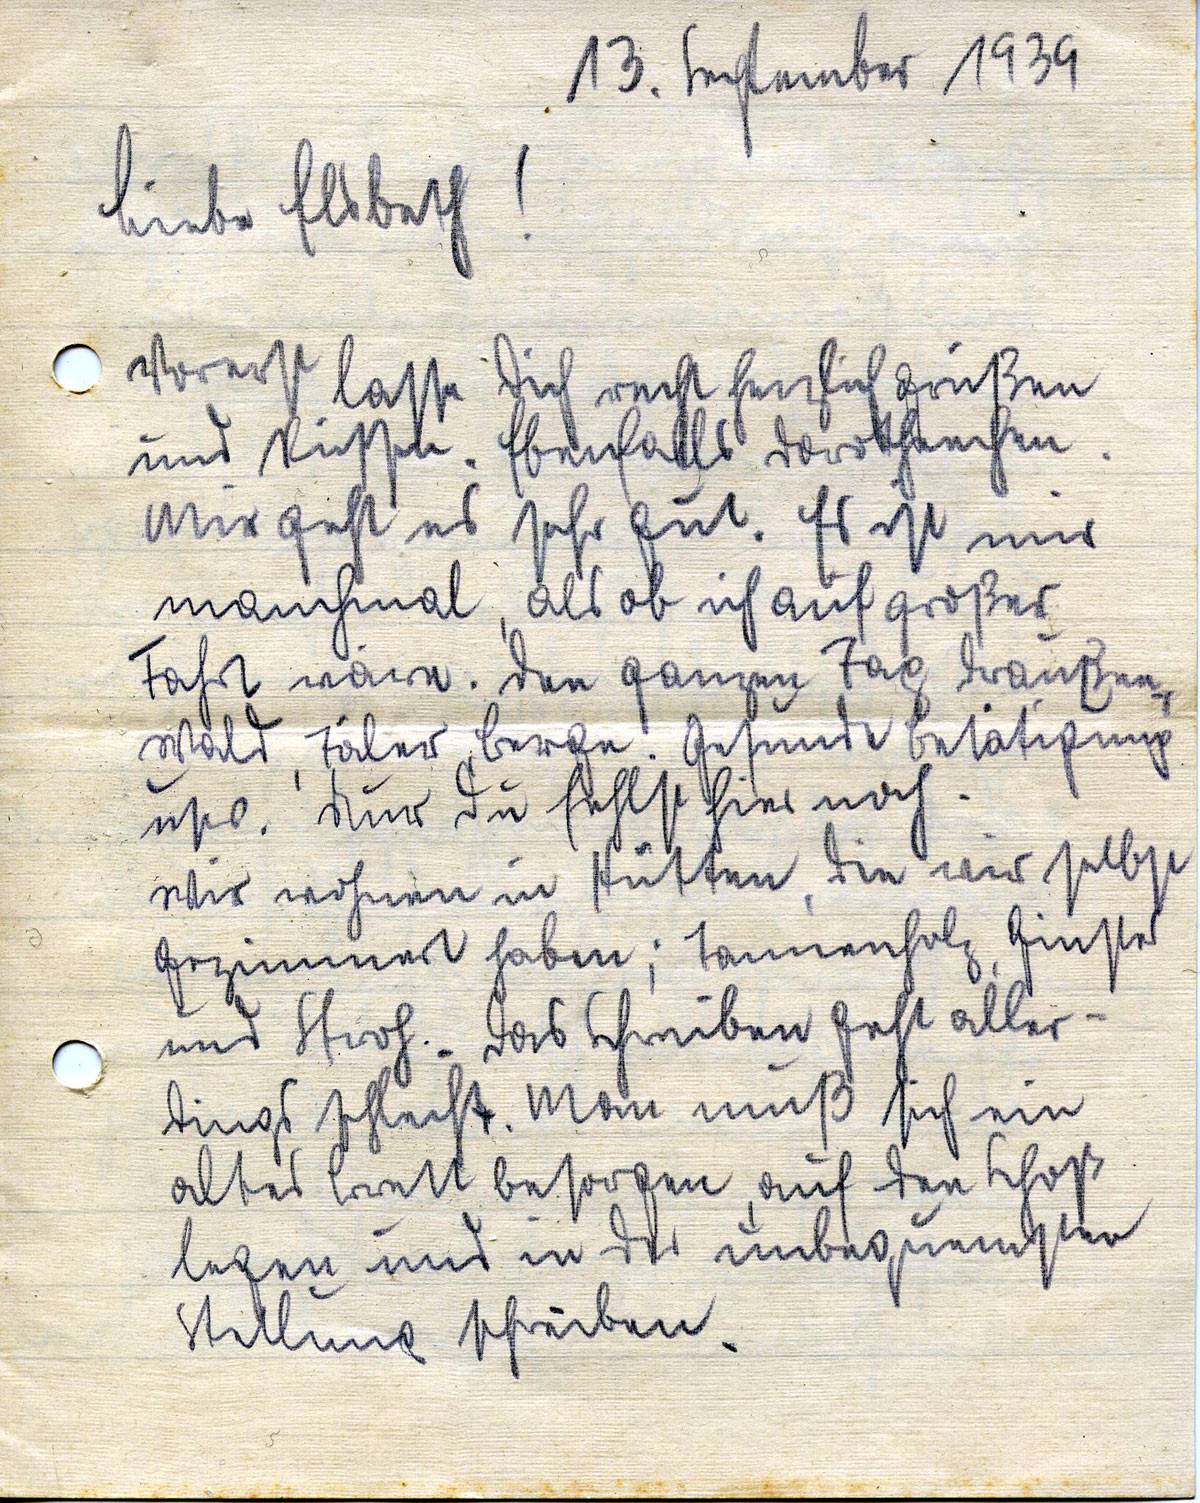 13. September 1939
Liebe Elsbeth!
Vorerst lasse Dich recht herzlich grüßen
und küssen. Ebenfalls Dorotheechen.
Mir geht es sehr gut. Es ist mir
manchmal, als ob ich auf großer
Fahrt wäre. Den ganzen Tag draußen,
Wald, Täler, Berge. Gesunde Betätigung
usw. Nur Du fehlst hier noch.
Wir wohnen in Hütten, die wir selbst
gezimmert haben; Tannenholz, Ginster
und Stroh. - Das Schreiben geht aller-
dings schlecht. Man muß sich ein
altes Brett besorgen, auf den Schoß
legen und in der unbequemsten
Stellung schreiben.